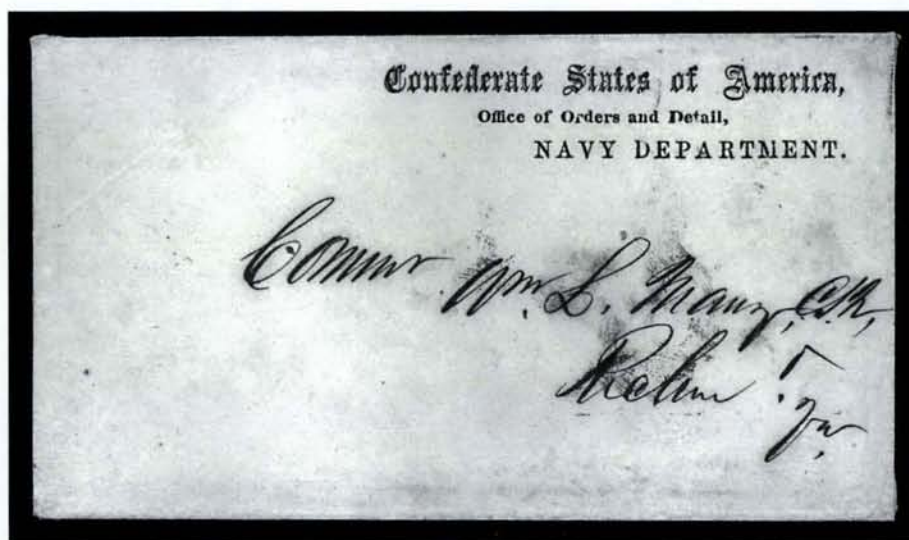 Confederate States of America,
Office of Orders and Detail,
NAVY DEPARTMENT.
Wm. L. Maury,
Va.